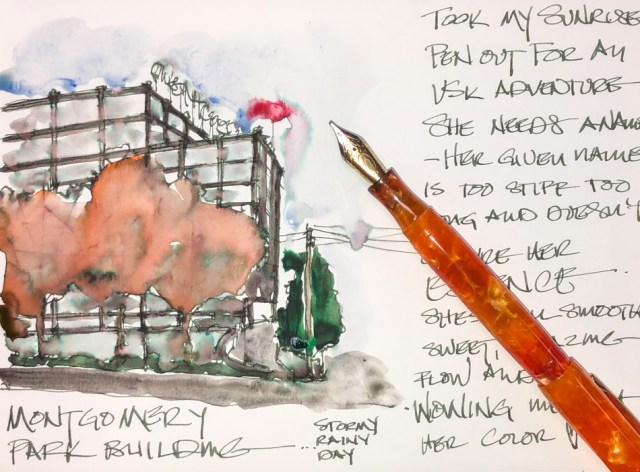 TOOK MY SUNRISE
PEN OUT FOR AN
USK ADVENTURE
SHE NEEDS A NAME
- HER GIVEN NAME
IS TOO STIFF TOO
AND DOESN'T
HER
SHE'S SMOOTH
SWEET,
FLOW
HER COLOR
MONTGOMERY
PARK BUILDING ...
STORMY
RAINY
DAY